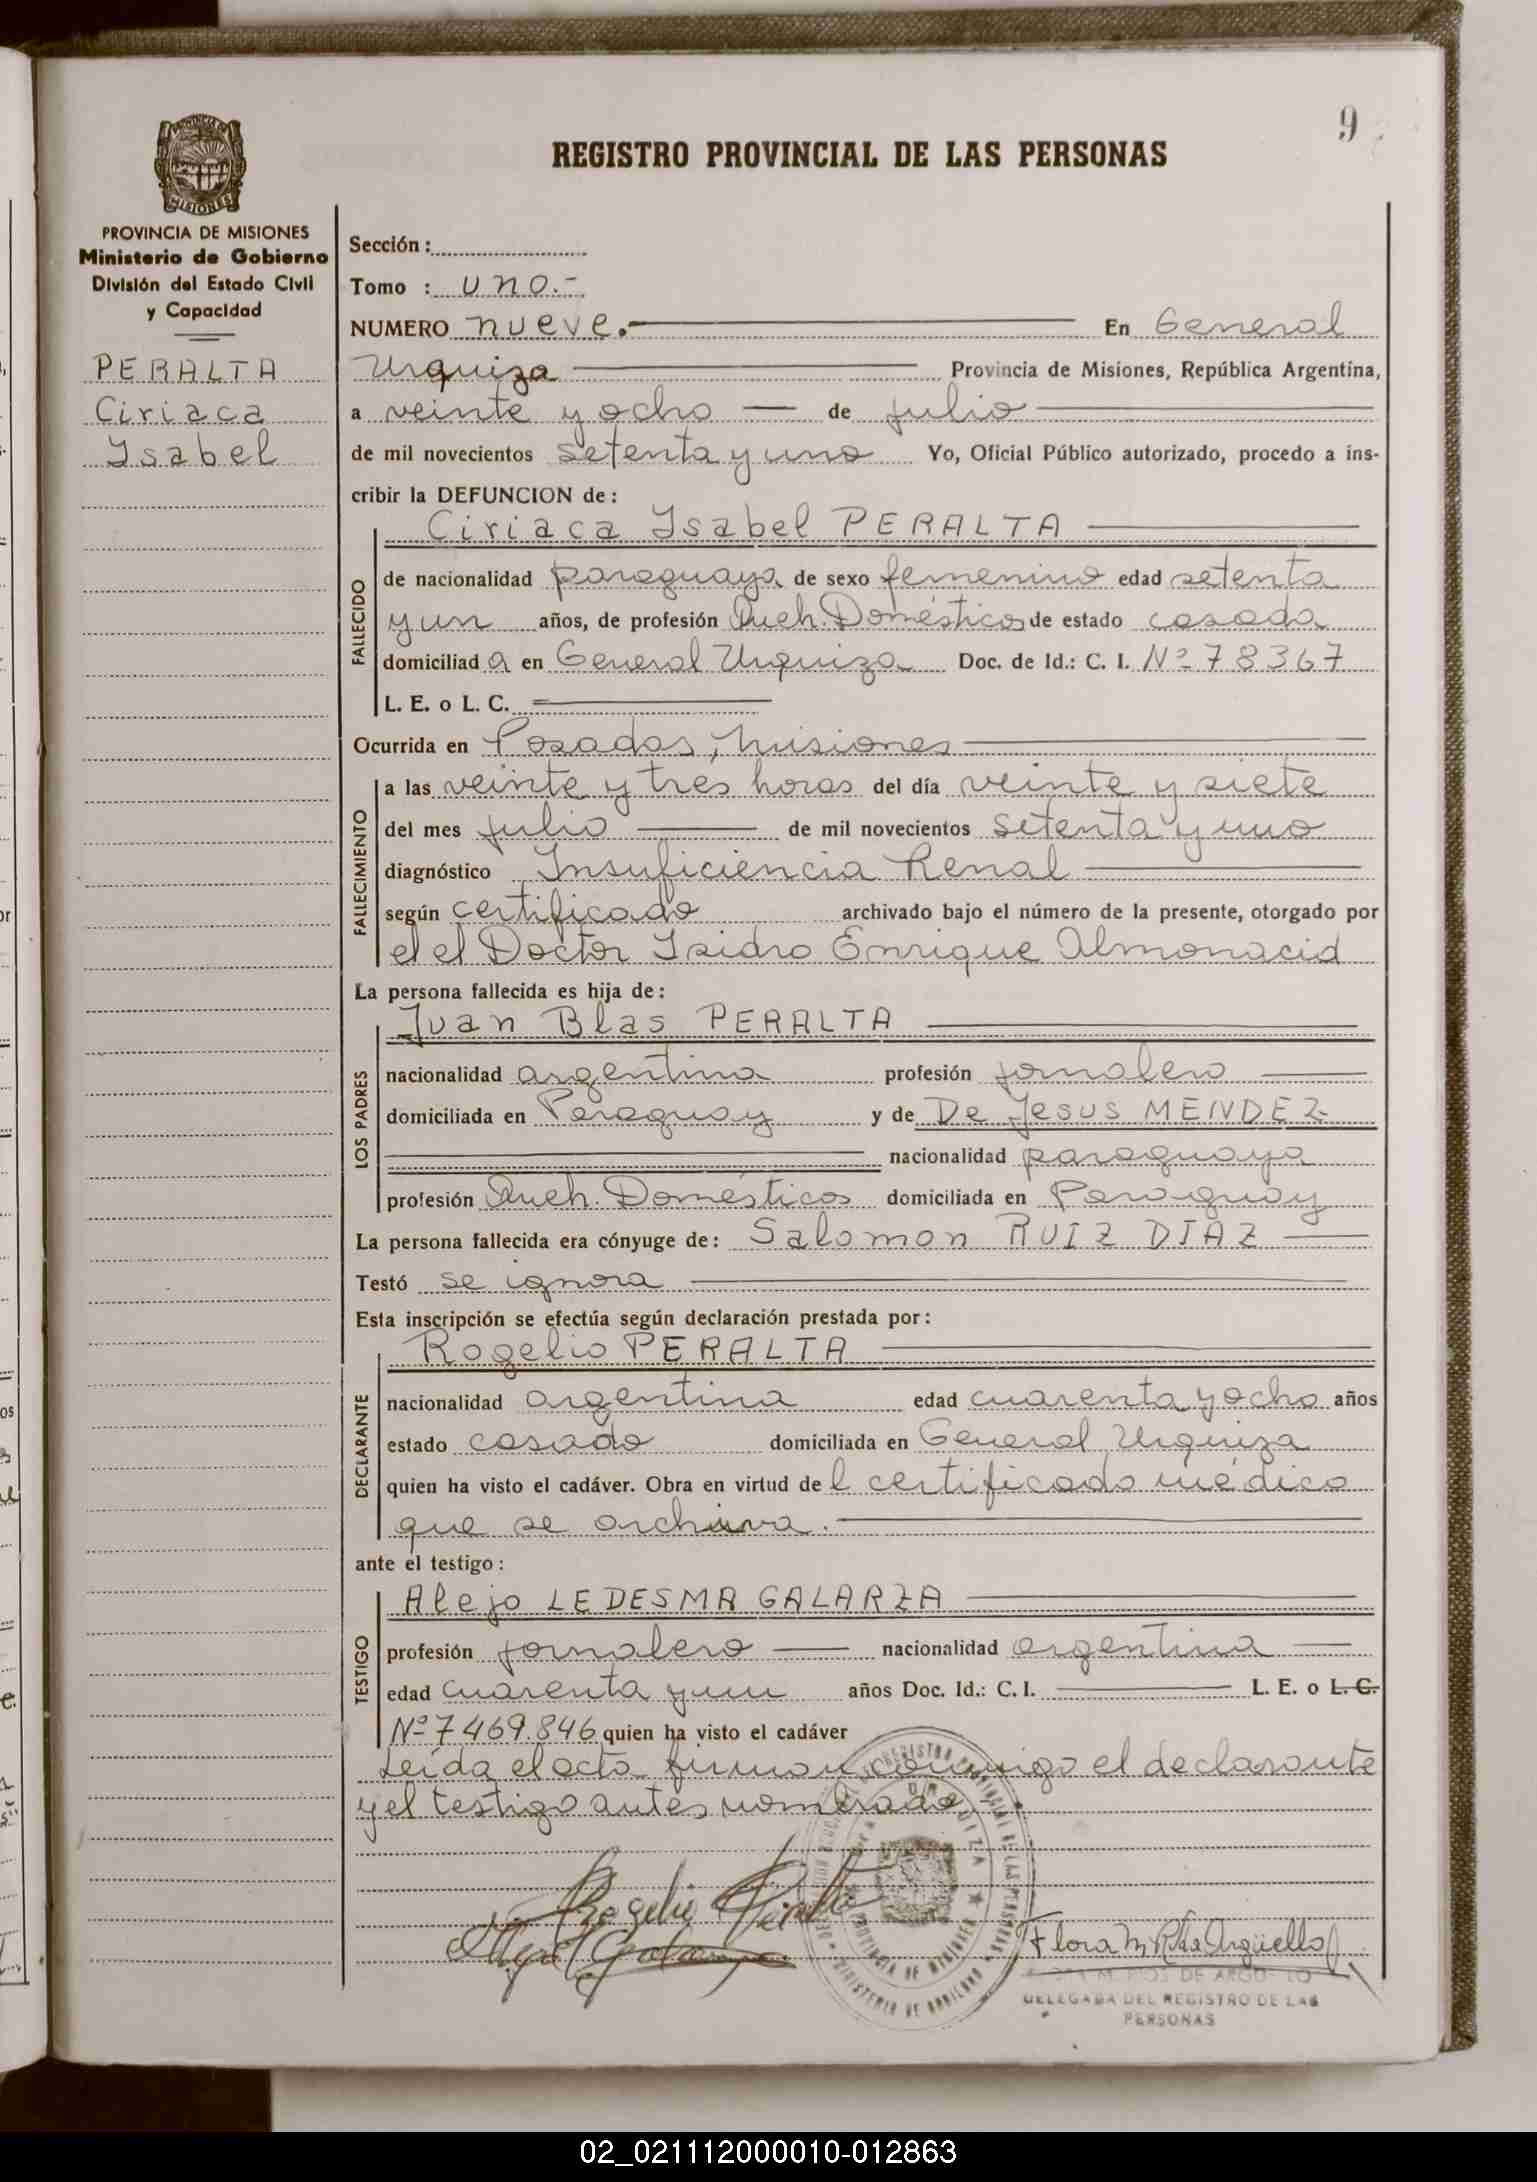 9
REGISTRO PROVINCIAL DE LAS PERSONAS
PROVINCIA DE MISIONES
MISIONES
PROVINCIA DE MISIONES
Ministerio de Gobierno
División del Estado Civil
y Capacidad
PERALTA
Ciriaca
Ysabel
Sección:
Tomo : uno.-
NUMERO nueve. En General
Urquiza Provincia de Misiones, República Argentina,
a veinte y ocho de julio
de mil novecientos setenta y uno Yo, Oficial Público autorizado, procedo a ins-
cribir la DEFUNCION de:
Ciriaca Ysabel PERALTA
FALLECIDO
de nacionalidad paraguaya de sexo femenino edad setenta
y un años, de profesión Queh. Domésticos de estado casada
domiciliad a en General Urquiza Doc. de Id.: C. I. Nº 78367
L. E. o L. C.
Ocurrida en Posadas, Misiones
FALLECIMIENTO
a las veinte y tres horas del día veinte y siete
del mes julio de mil novecientos setenta y uno
diagnóstico Insuficiencia Renal
según certificado archivado bajo el número de la presente, otorgado por
el el Doctor Isidro Enrique Almonacid
La persona fallecida es hija de:
Juan Blas PERALTA
LOS PADRES
nacionalidad argentina profesión jornalero
domiciliada en Paraguay y de De Jesus MENDEZ
nacionalidad paraguaya
profesión Queh. Domésticos domiciliada en Paraguay
La persona fallecida era cónyuge de: Salomon RUIZ DIAZ
Testó se ignora
Esta inscripción se efectúa según declaración prestada por:
Rogelio PERALTA
DECLARANTE
nacionalidad argentina edad cuarenta y ocho años
estado casado domiciliada en General Urquiza
quien ha visto el cadáver. Obra en virtud de l certificado médico
que se archiva.
ante el testigo:
Alejo LEDESMA GALARZA
TESTIGO
profesión jornalero nacionalidad argentina
edad cuarenta y un años Doc. Id.: C. I. L. E. o L. C.
Nº 7469.846 quien ha visto el cadáver
Leída el acta firman conmigo el declarante
y el testigo antes nombrado.
REGISTRO PROVINCIAL DE LAS PERSONAS
PROVINCIA DE MISIONES
Rogelio Peralta
Flora M R de Argüello
DELEGADA DEL REGISTRO DE LAS
PERSONAS
02_021112000010-012863